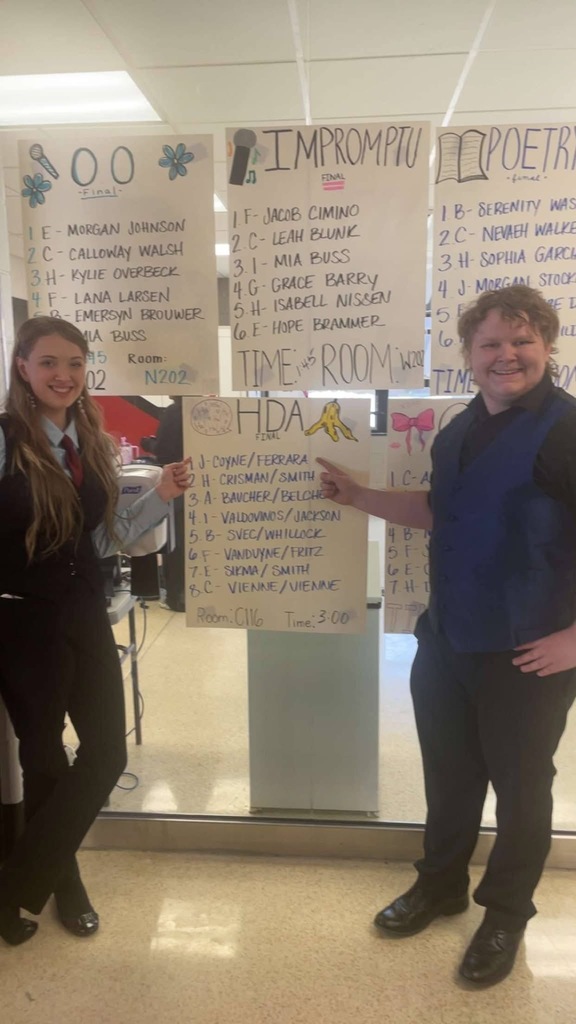 OO
-Final-
1 E- MORGAN JOHNSON
2 C- CALLOWAY WALSH
3 H- KYLIE OVERBECK
4 F- LANA LARSEN
5 B- EMERSYN BROUWER
MIA BUSS
45 Room:
02 N202
IMPROMPTU
FINAL
1 F- JACOB CIMINO
2. C- LEAH BLUNK
3. I- MIA BUSS
4. G- GRACE BARRY
5. H- ISABELL NISSEN
6. E- HOPE BRAMMER
TIME: 1:45 ROOM: N202
POETR
-final-
1. B- SERENITY WAS
2. C- NEVAEH WALKE
3. H- SOPHIA GARC
4. J- MORGAN STOCK
5.
6
TIME
HDA
FINAL
1 J- COYNE/FERRARA
2 H- CRISMAN/SMITH
3. A- BAUCHER/BELCHE
4. I- VALDOVINOS/JACKSON
5. B- SVEC/WHILLOCK
6. F- VANDUYNE/FRITZ
7. E- SIKMA/SMITH
8. C- VIENNE/VIENNE
Room: C116 Time: 3:00
1. C- A
4 B-
5 F-
6 E-
7 H-